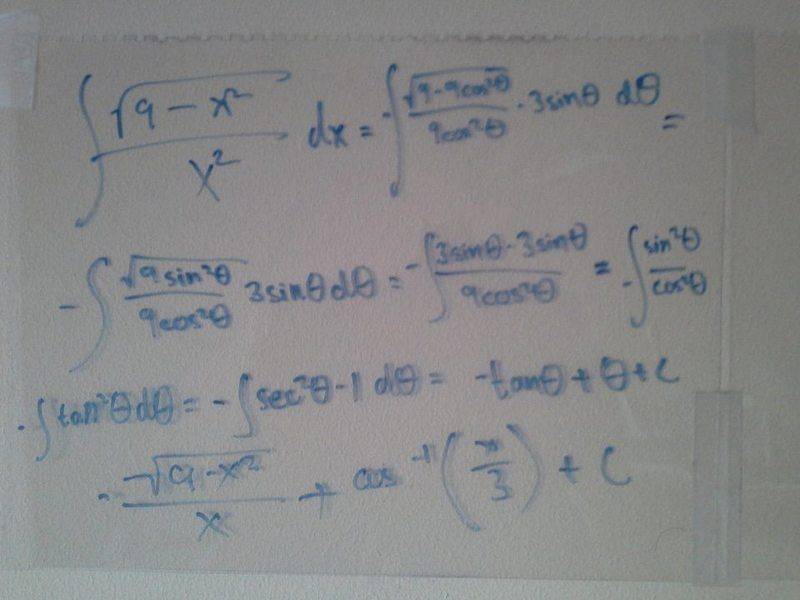 ∫ √(9 - x²) / x² dx = -∫ √(9-9cos²θ) / 9cos²θ · 3sinθ dθ =
-∫ √(9sin²θ) / 9cos²θ 3sinθdθ = -∫ 3sinθ·3sinθ / 9cos²θ = -∫ sin²θ / cos²θ
-∫ tan²θdθ = -∫ sec²θ-1 dθ = -tanθ + θ + C
-√(9-x²) / x + cos⁻¹(x/3) + C